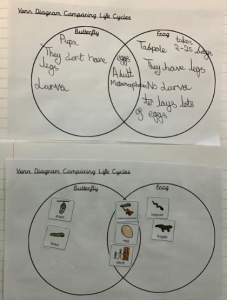 Venn Diagram Comparing Life Cycles
Butterfly
Frog
Pupa
They dont have legs
Larva
eggs
Adult
Metamorphosis
takes 2-25 days
Tadpole
They have legs
No Larva
lays lots of eggs
Venn Diagram Comparing Life Cycles
Butterfly
Frog